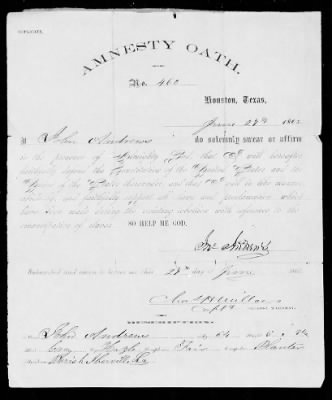 DUPLICATE.
AMNESTY OATH.
No. 460
Houston, Texas,
June 27th 1865
I John Andrews do solemnly swear or affirm
in the presence of Almighty God, that I will hereafter
faithfully defend the Constitution of the United States and the
Union of the States thereunder, and that I will in like manner,
abide by, and faithfully support all laws and proclamations which
have been made during the existing rebellion with reference to the
emancipation of slaves.
SO HELP ME GOD.
Jno Andrews
Subscribed and sworn to before me this 27th day of June 1865
Capt &
PROVOST MARSHAL.
DESCRIPTION.
John Andrews age 64
Gray Hazle Fair Planter
Parish Iberville, La